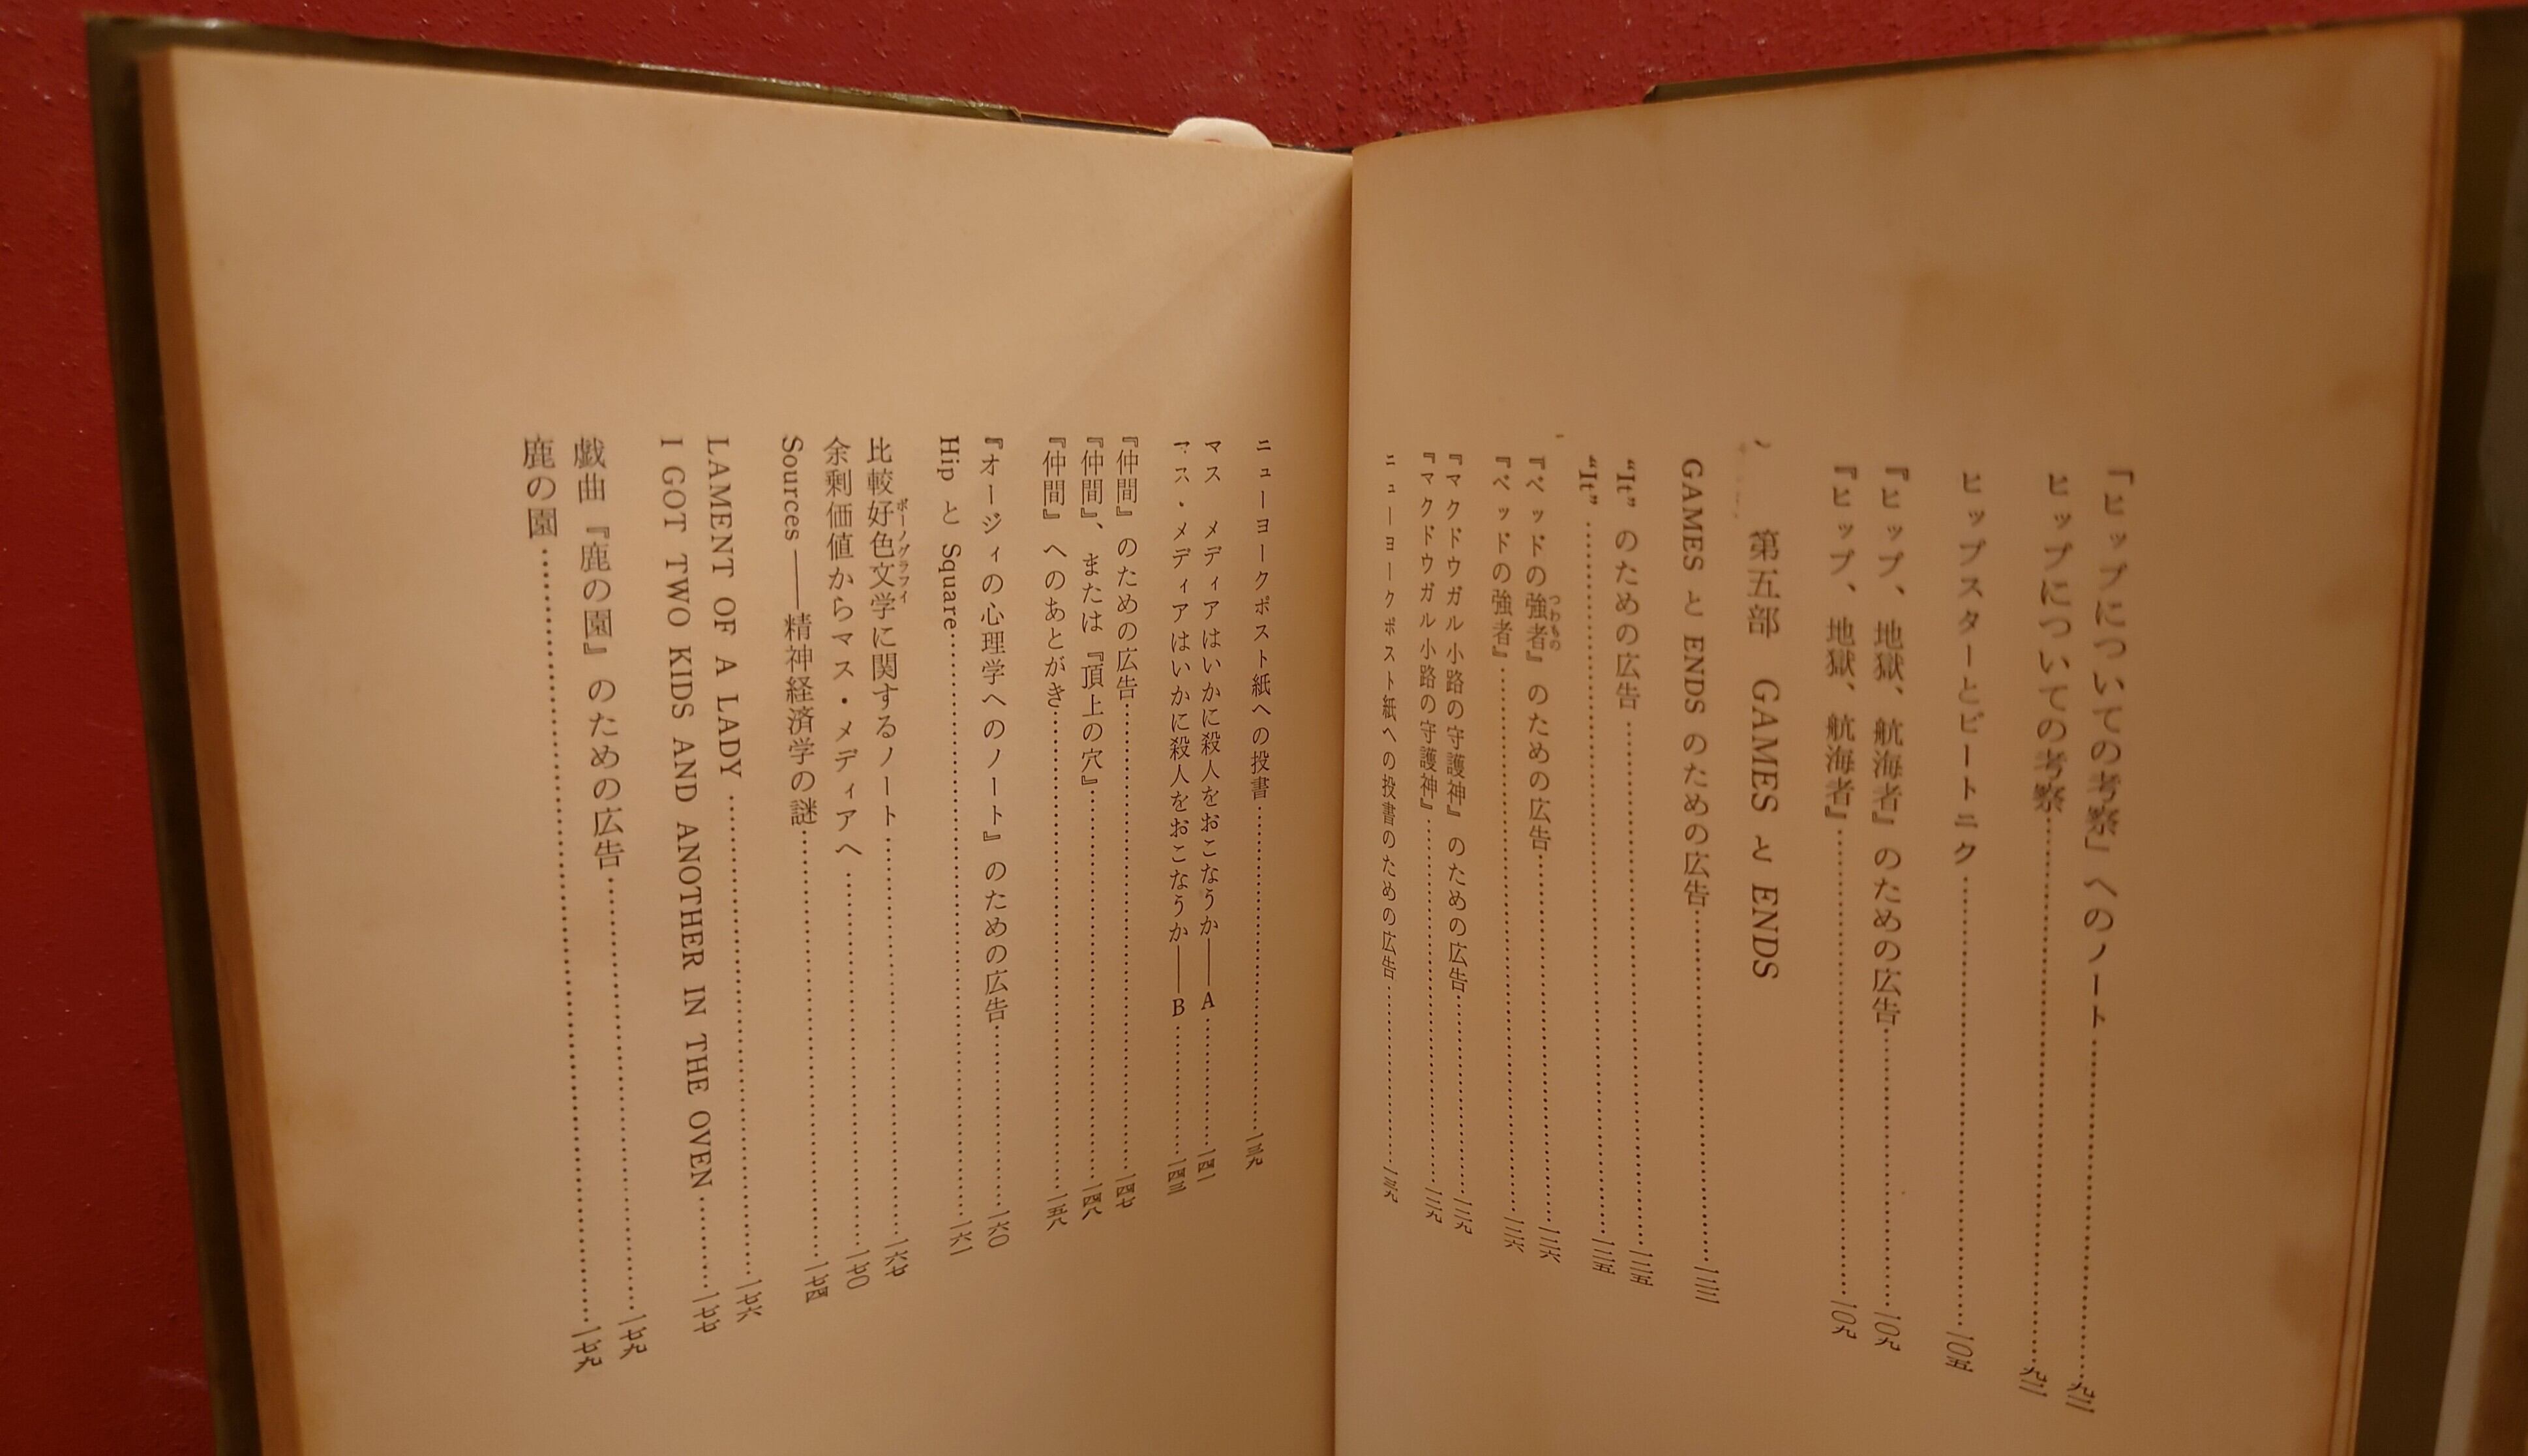 『ヒップについての考察』へのノート……九二
ヒップについての考察……九二
ヒップスターとビートニク……一〇五
『ヒップ、地獄、航海者』のための広告……一〇九
『ヒップ、地獄、航海者』……一〇九
第五部 GAMES と ENDS
GAMES と ENDS のための広告……
“It” のための広告……一二五
“It”……一二五
『ベッドの強者』のための広告……一二六
『ベッドの強者』……一二六
『マクドウガル小路の守護神』のための広告……一二九
『マクドウガル小路の守護神』……一二九
ニューヨークポスト紙への投書のための広告……
ニューヨークポスト紙への投書……一三九
マス メディアはいかに殺人をおこなうか――A……一四一
マス・メディアはいかに殺人をおこなうか――B……一四三
『仲間』のための広告……一四七
『仲間』、または『頂上の穴』……一四八
『仲間』へのあとがき……一五八
『オージィの心理学へのノート』のための広告……一六〇
Hip と Square……一六一
比較好色文学に関するノート……一六七
余剰価値からマス・メディアへ……一七〇
Sources――精神経済学の謎……一七四
LAMENT OF A LADY……一七六
I GOT TWO KIDS AND ANOTHER IN THE OVEN……一七七
戯曲『鹿の園』のための広告……一七九
鹿の園……一七九